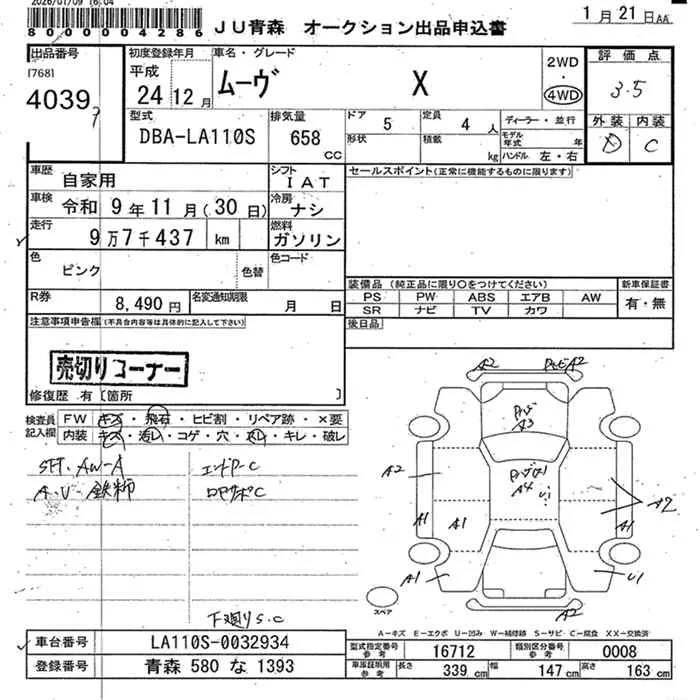 2026/01/09 16:04
8000004286
JU青森 オークション出品申込書
1月21日AA
出品番号
[7681
4039
初度登録年月
平成
24 12月
車名・グレード
ムーヴ X
2WD
・
4WD
評価点
3.5
外装 内装
D C
型式
DBA-LA110S
排気量
658
CC
ドア 5
定員 4人
形状
積載 kg
ディーラー・並行
モデル年式 年
ハンドル 左・右
車歴 自家用
シフト IAT
セールスポイント(正常に機能するものに限ります)
車検 令和 9年11月(30日)
冷房 ナシ
走行 9万7千437 km
燃料 ガソリン
色 ピンク
色替
色コード
装備品 (純正品に限り○をつけてください)
新車保証書
PS PW ABS エアB AW
SR ナビ TV カワ
有・無
R券 8,490円
名変通知期限 月 日
後日品
注意事項申告欄(不具合内容等は具体的に記入して下さい)
売切りコーナー
修復歴 有 [箇所 ]
検査員記入欄
FW キズ・飛石・ヒビ割・リペア跡・×要
内装 キズ・汚レ・コゲ・穴・スレ・キレ・破レ
AW-A
下廻りS.C
A2
A2
A3
A4
U1
A2
A2
A1
A1
A1
A1
U1
A2
スペア
A-キズ E-エクボ U-凹み W-補修跡 S-サビ C-腐食 XX-交換済
車台番号 LA110S-0032934
型式指定番号参考 16712
類別区分番号参考 0008
登録番号 青森 580 な 1393
車庫証明用参考 長さ 339 cm 幅 147 cm 高さ 163 cm